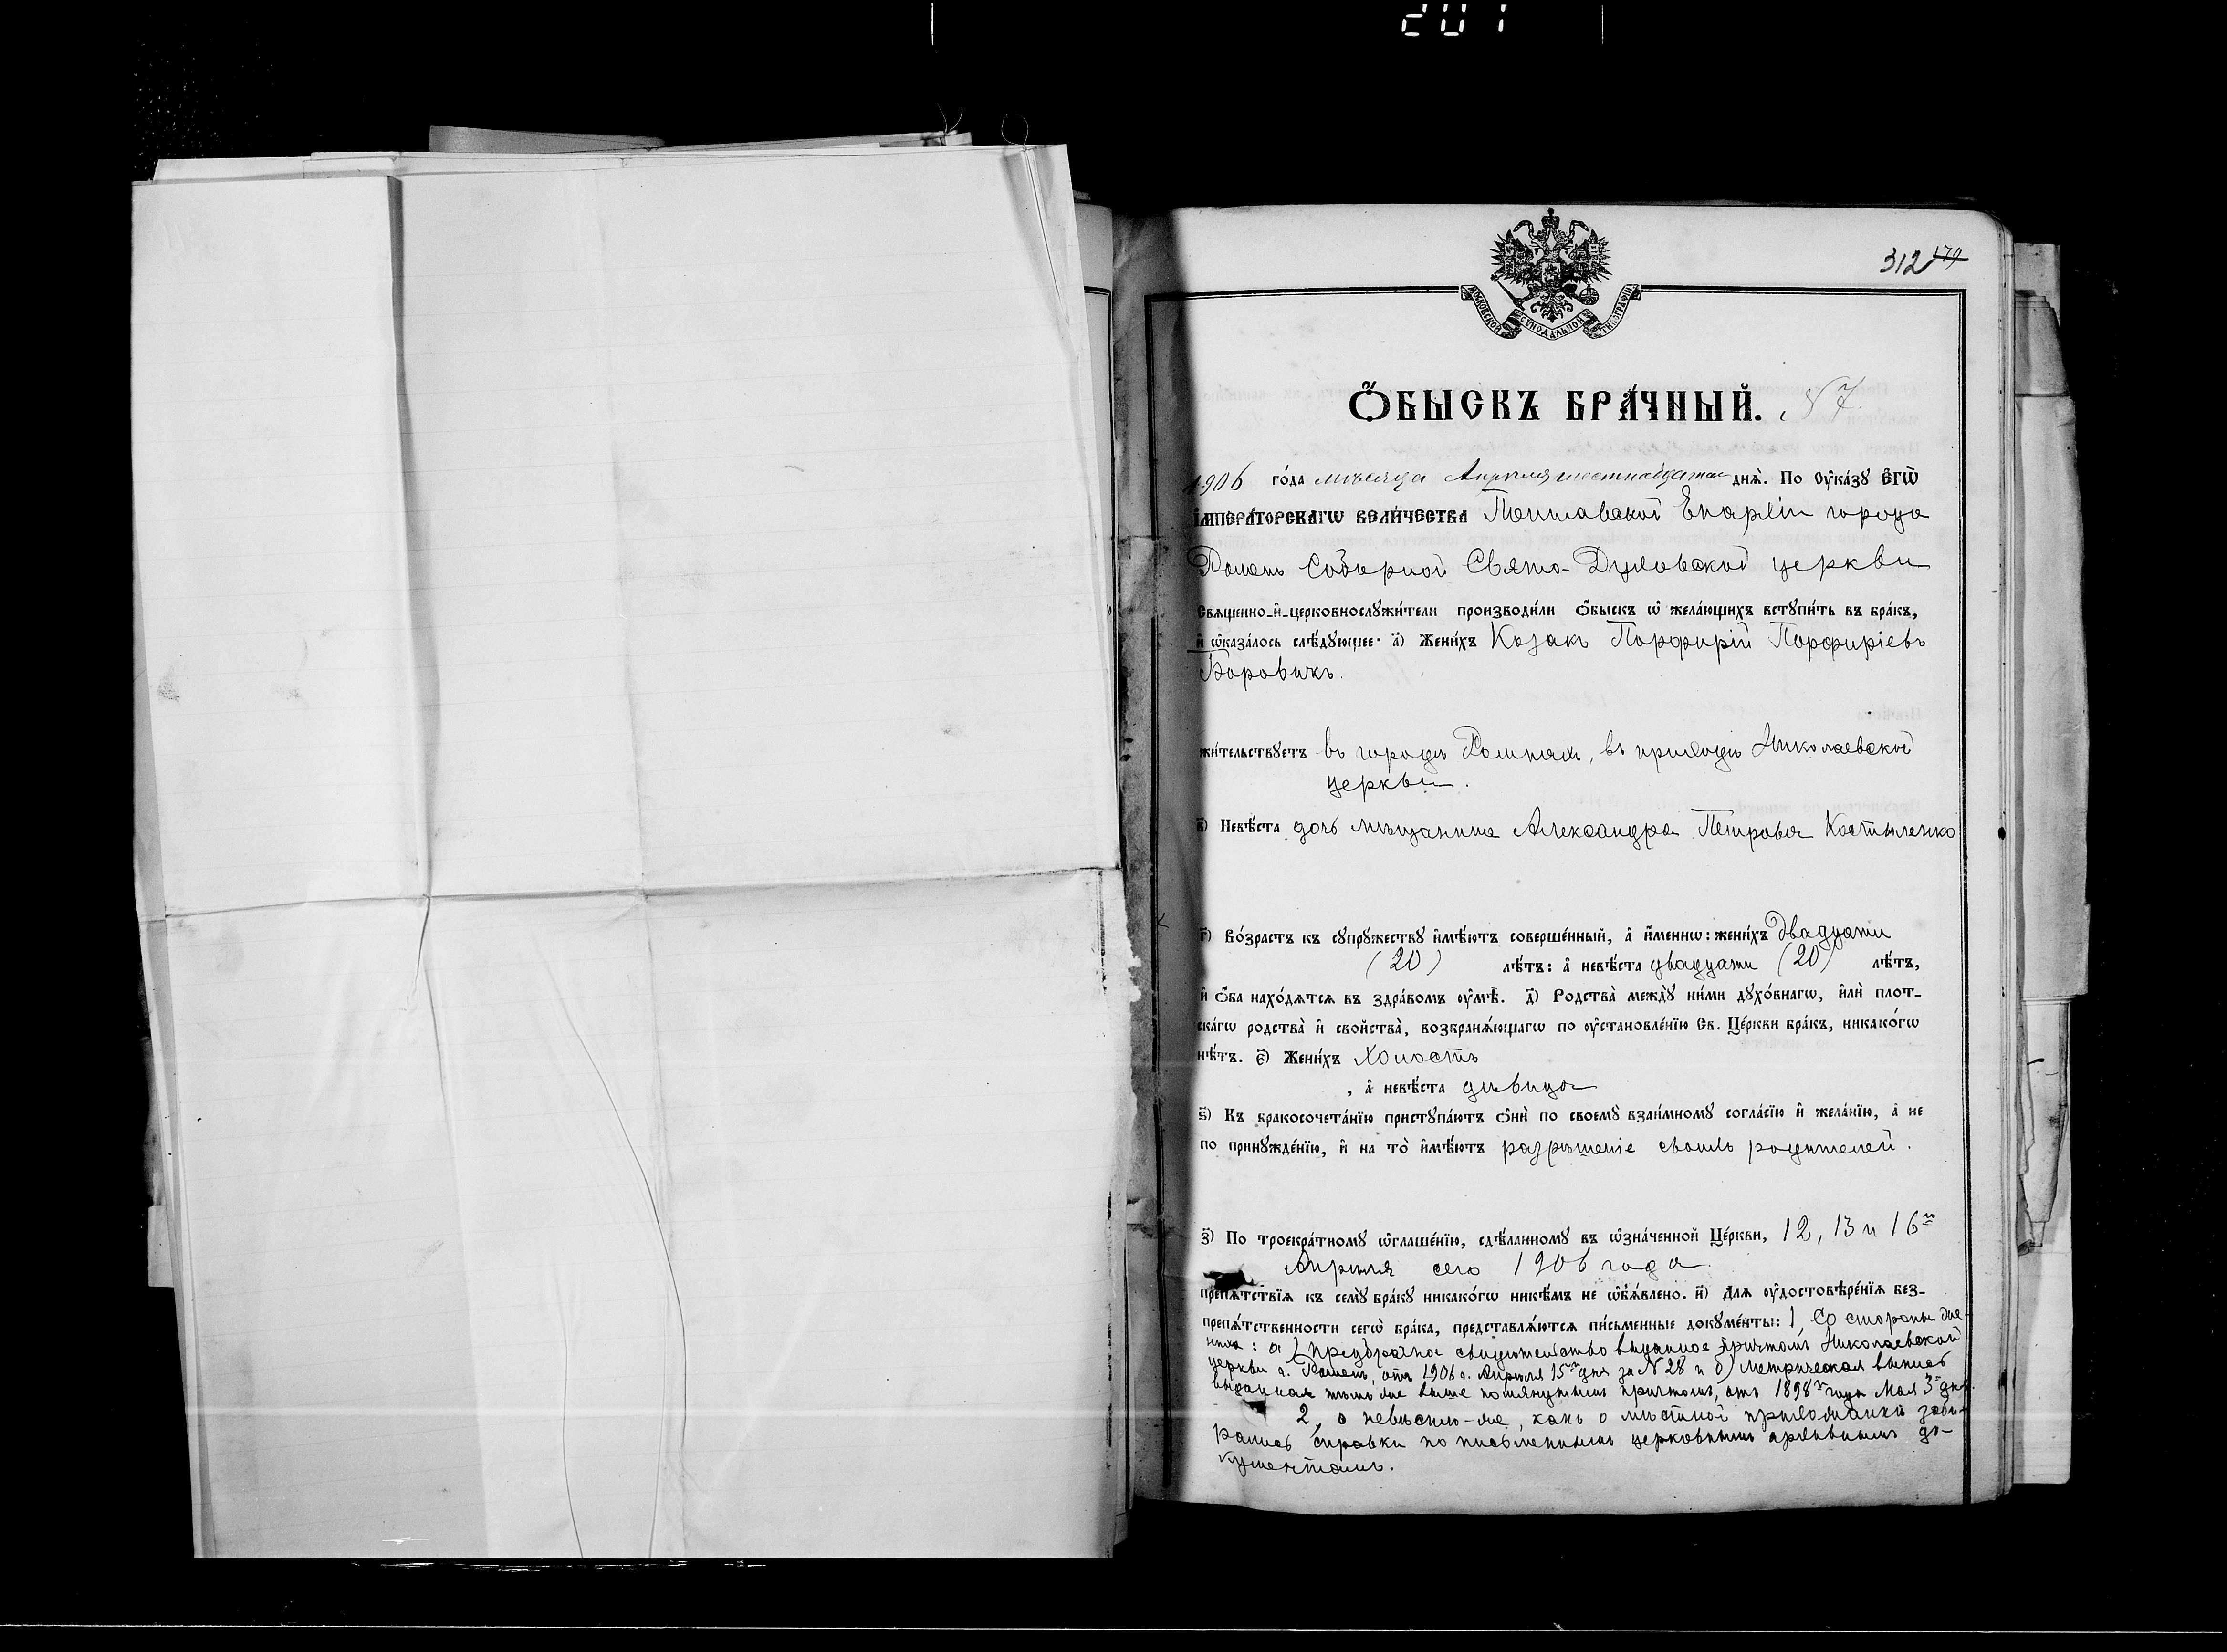 201
312 179
МОСКОВСКОЙ СѴНОДАЛЬНОЙ ТИПОГРАФІИ
Ѻ҆́БЫСКЪ БРА́ЧНЫЙ. 57
1906 го́да мѣсяца Апрѣля шестнадцатаго днѧ̀. По Оу҆ка́зꙋ Є҆гѡ̀
І҆мпера́торскагѡ вели́чества Полтавской Епархіи города
Роменъ Соборной Свято-Духовской церкви
Свѧщенно-и҆-церковнослꙋжи́тели производи́ли ѻ҆́быскъ ѡ҆ жела́ющихъ вступи́ть въ бра́къ,
и҆ ѡ҆каза́лось слѣ́дꙋющее: а҃) Жени́хъ Козакъ Порфирій Порфиріевъ
Боровикъ.
жи́тельствꙋетъ въ городѣ Ромнахъ, въ приходѣ Николаевской
церкви.
в҃) Невѣ́ста дочь мѣщанина Александра Петрова Костыленко
г҃) Во́зрастъ къ сꙋпрꙋ́жествꙋ и҆мѣ́ютъ соверше́нный, а҆ и҆́меннѡ: жени́хъ двадцати
(20) лѣ́тъ: а҆ невѣ́ста двадцати (20) лѣ́тъ,
и҆ ѻ҆́ба нахо́дѧтсѧ въ здра́вомъ оу҆мѣ̀. д҃) Родства̀ междꙋ̀ ни́ми дꙋхо́внагѡ, и҆лѝ плот-
ска́гѡ родства̀ и҆ свойства̀, возбранѧ́ющагѡ по оу҆становле́нїю Св. Це́ркви бра́къ, никако́гѡ
нѣ́тъ. є҃) Жени́хъ холостъ
, а҆ невѣ́ста дѣвица
ѕ҃) Къ бракосочета́нїю пристꙋпа́ютъ ѻ҆нѝ по своемꙋ̀ взаи́мномꙋ согла́сїю и҆ жела́нїю, а҆ не
по принꙋжде́нїю, и҆ на то̀ и҆мѣ́ютъ разрѣшеніе своихъ родителей.
з҃) По троекра́тномꙋ ѡ҆глаше́нїю, сдѣ́ланномꙋ въ ѡ҆зна́ченной Це́ркви, 12, 13 и 16го
Апрѣля сего 1906 года
препѧ́тствїѧ къ семꙋ̀ бра́кꙋ никако́гѡ никѣ́мъ не ѡ҆б̾ѧ́влено. и҃) Длѧ оу҆достовѣре́нїѧ без-
препѧ́тственности сегѡ̀ бра́ка, представлѧ́ютсѧ пи́сьменные докꙋме́нты: 1, Со стороны же-
ниха: а) предбрачное свидѣтельство выданное причтомъ Николаевской
церкви г. Роменъ, отъ 1906 г. Апрѣля 15го дня за № 28 и б) Метрическая выпись
выданная тѣмъ же выше помянутымъ причтомъ, отъ 1898го года Мая 3го дня.
2, о невѣстѣ-же, какъ о мѣстной прихожанкѣ заби-
рались справки по письменнымъ церковнымъ архивнымъ до-
кументамъ.